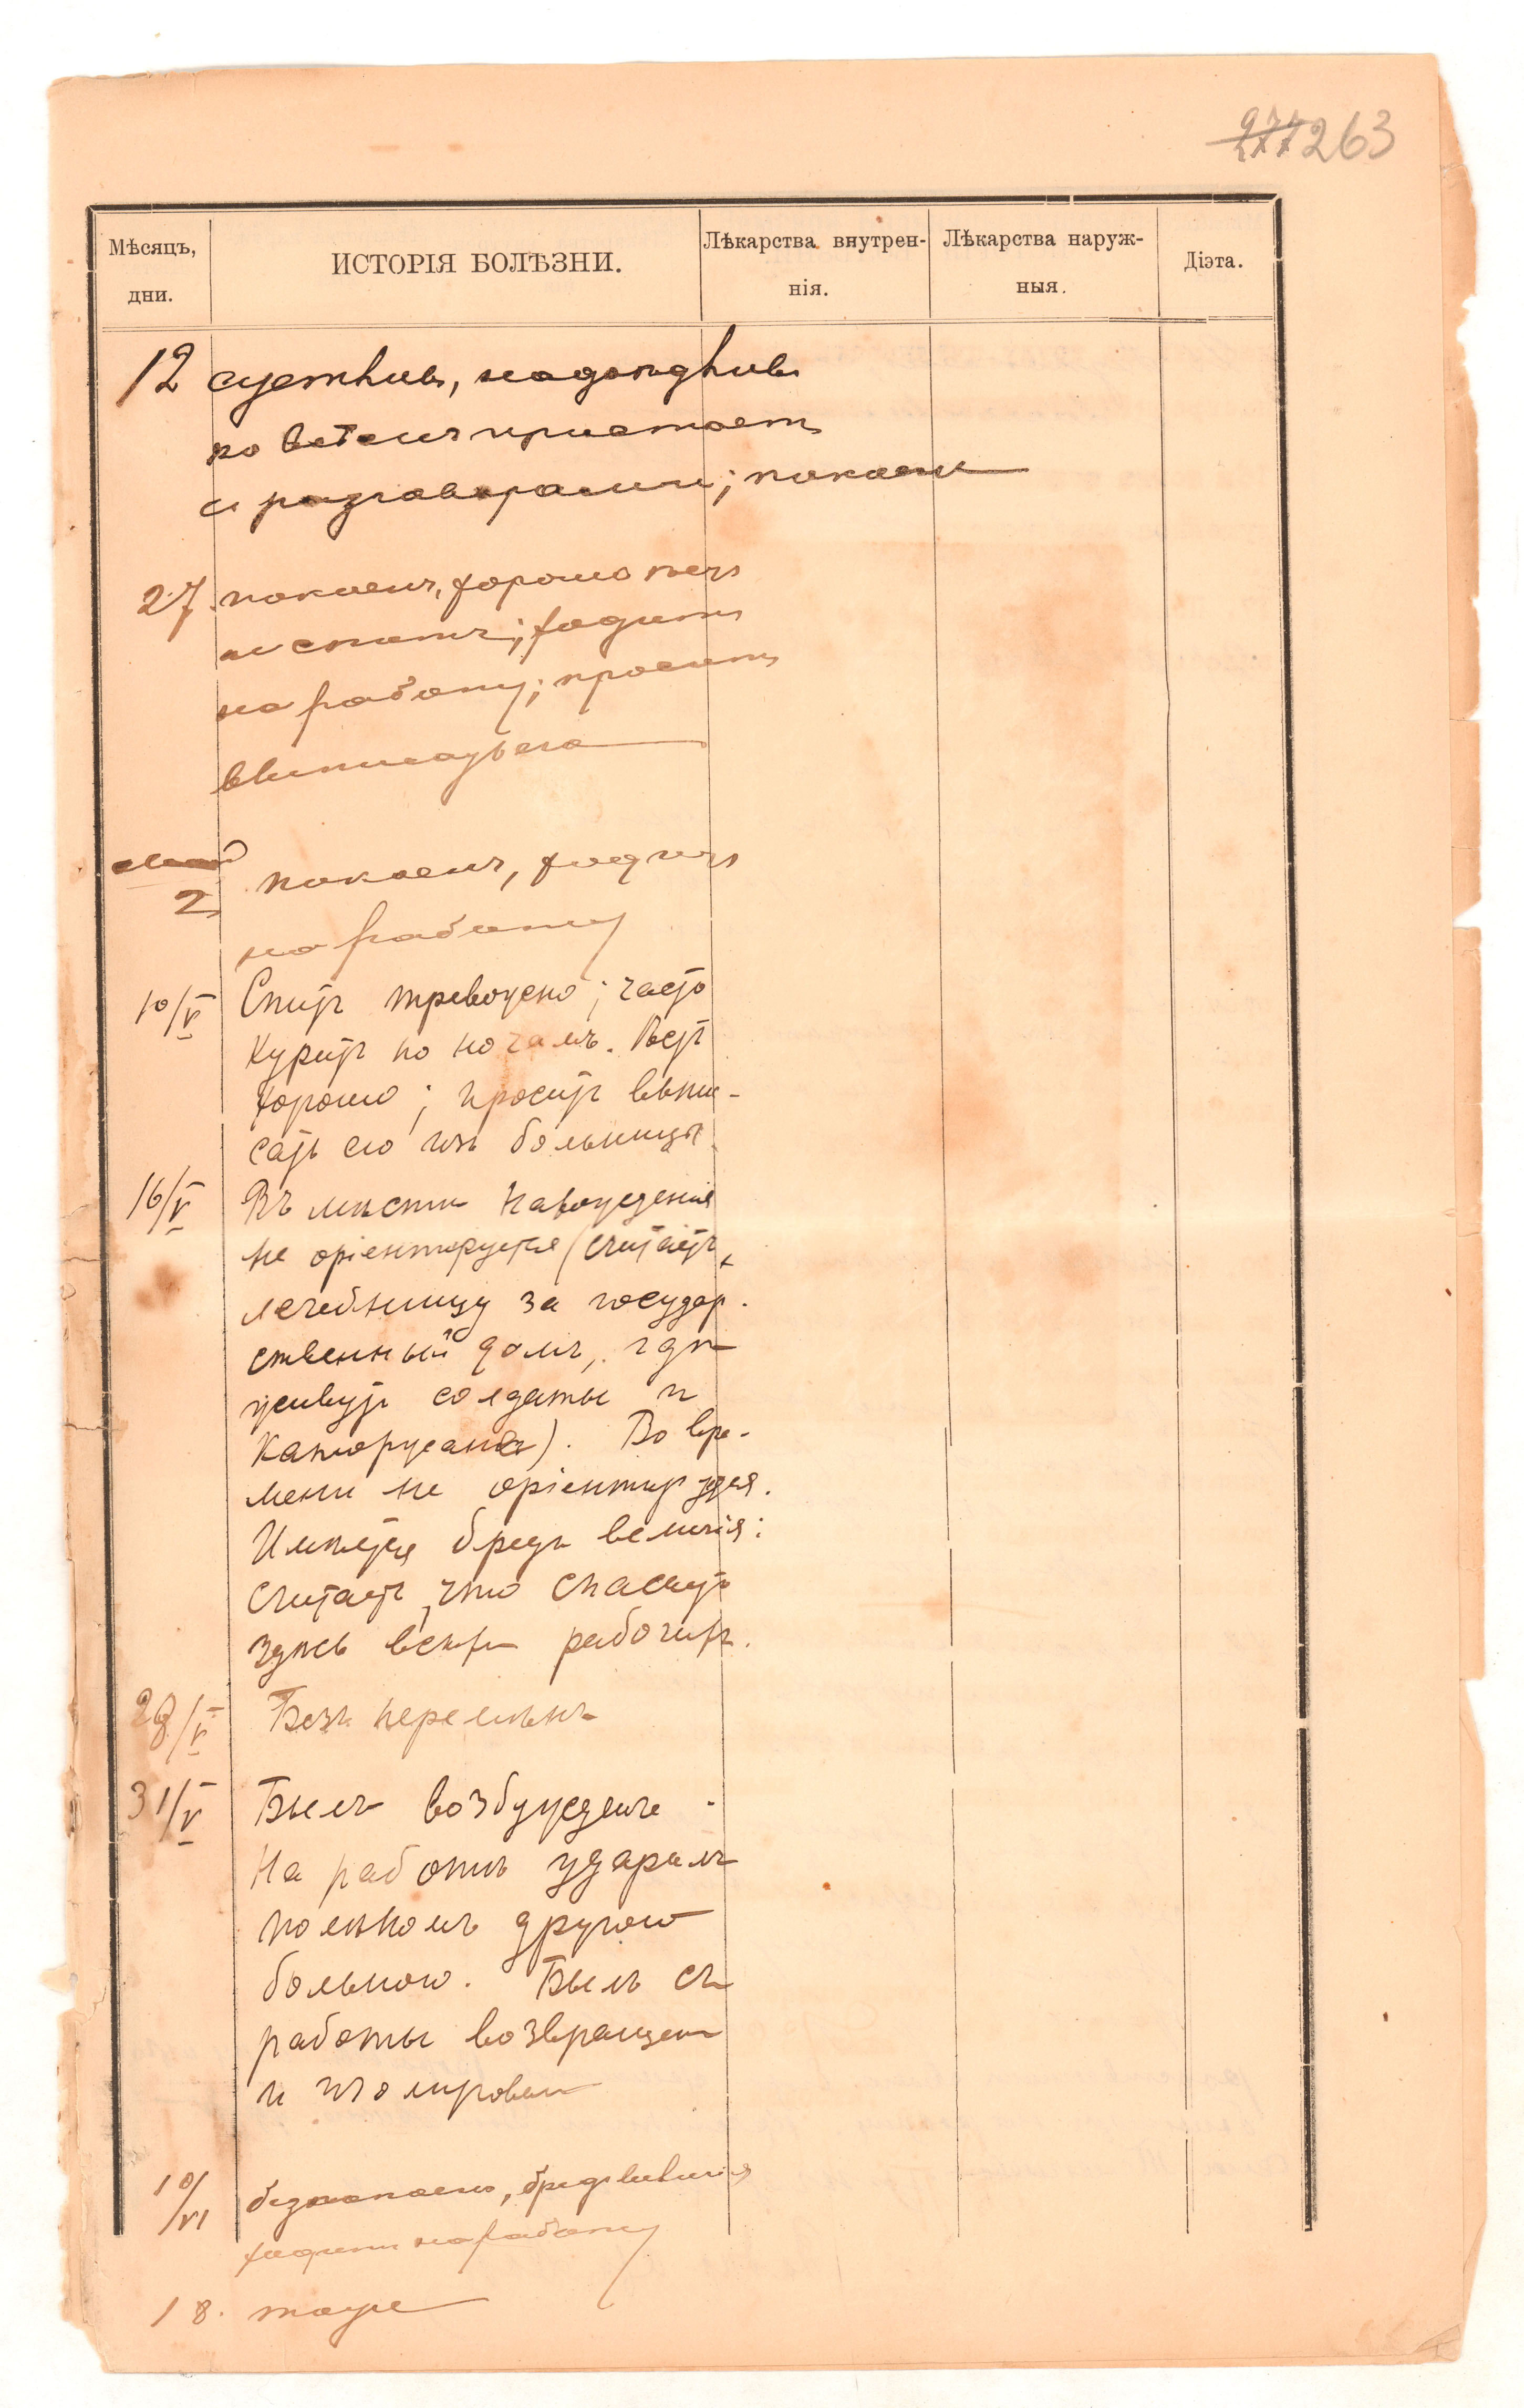 277 263
Мѣсяцъ,
дни.
ИСТОРІЯ БОЛѢЗНИ.
Лѣкарства внутрен-
нія.
Лѣкарства наруж-
ныя.
Діэта.
12 суетливъ, надоѣдливъ
ко всѣмъ пристаетъ
съ разговорами; покоенъ
27 покоенъ, хорошо ѣстъ
и спитъ; ходитъ
на работу; проситъ
выписать его
май
2 покоенъ, ходитъ
на работу
10/V Спитъ тревожно; часто
курит по ночамъ. Ѣстъ
хорошо; проситъ выпи-
сать его изъ больницы.
16/V Въ мѣстѣ нахожденія
не оріентируется (считаетъ
лечебницу за государ-
ственный домъ, гдѣ
живутъ солдаты и
каторжане). Во вре-
мени не оріентируется.
Имѣется бредъ величія:
считаетъ, что спасетъ
здѣсь всѣхъ рабочихъ.
28/V Безъ перемѣнъ
31/V Былъ возбужденъ.
На работѣ ударилъ
полѣномъ другого
больного. Былъ съ
работы возвращенъ
и изолированъ
10/VI безпокоенъ, бредъ величія
ходитъ на работу
18. тоже